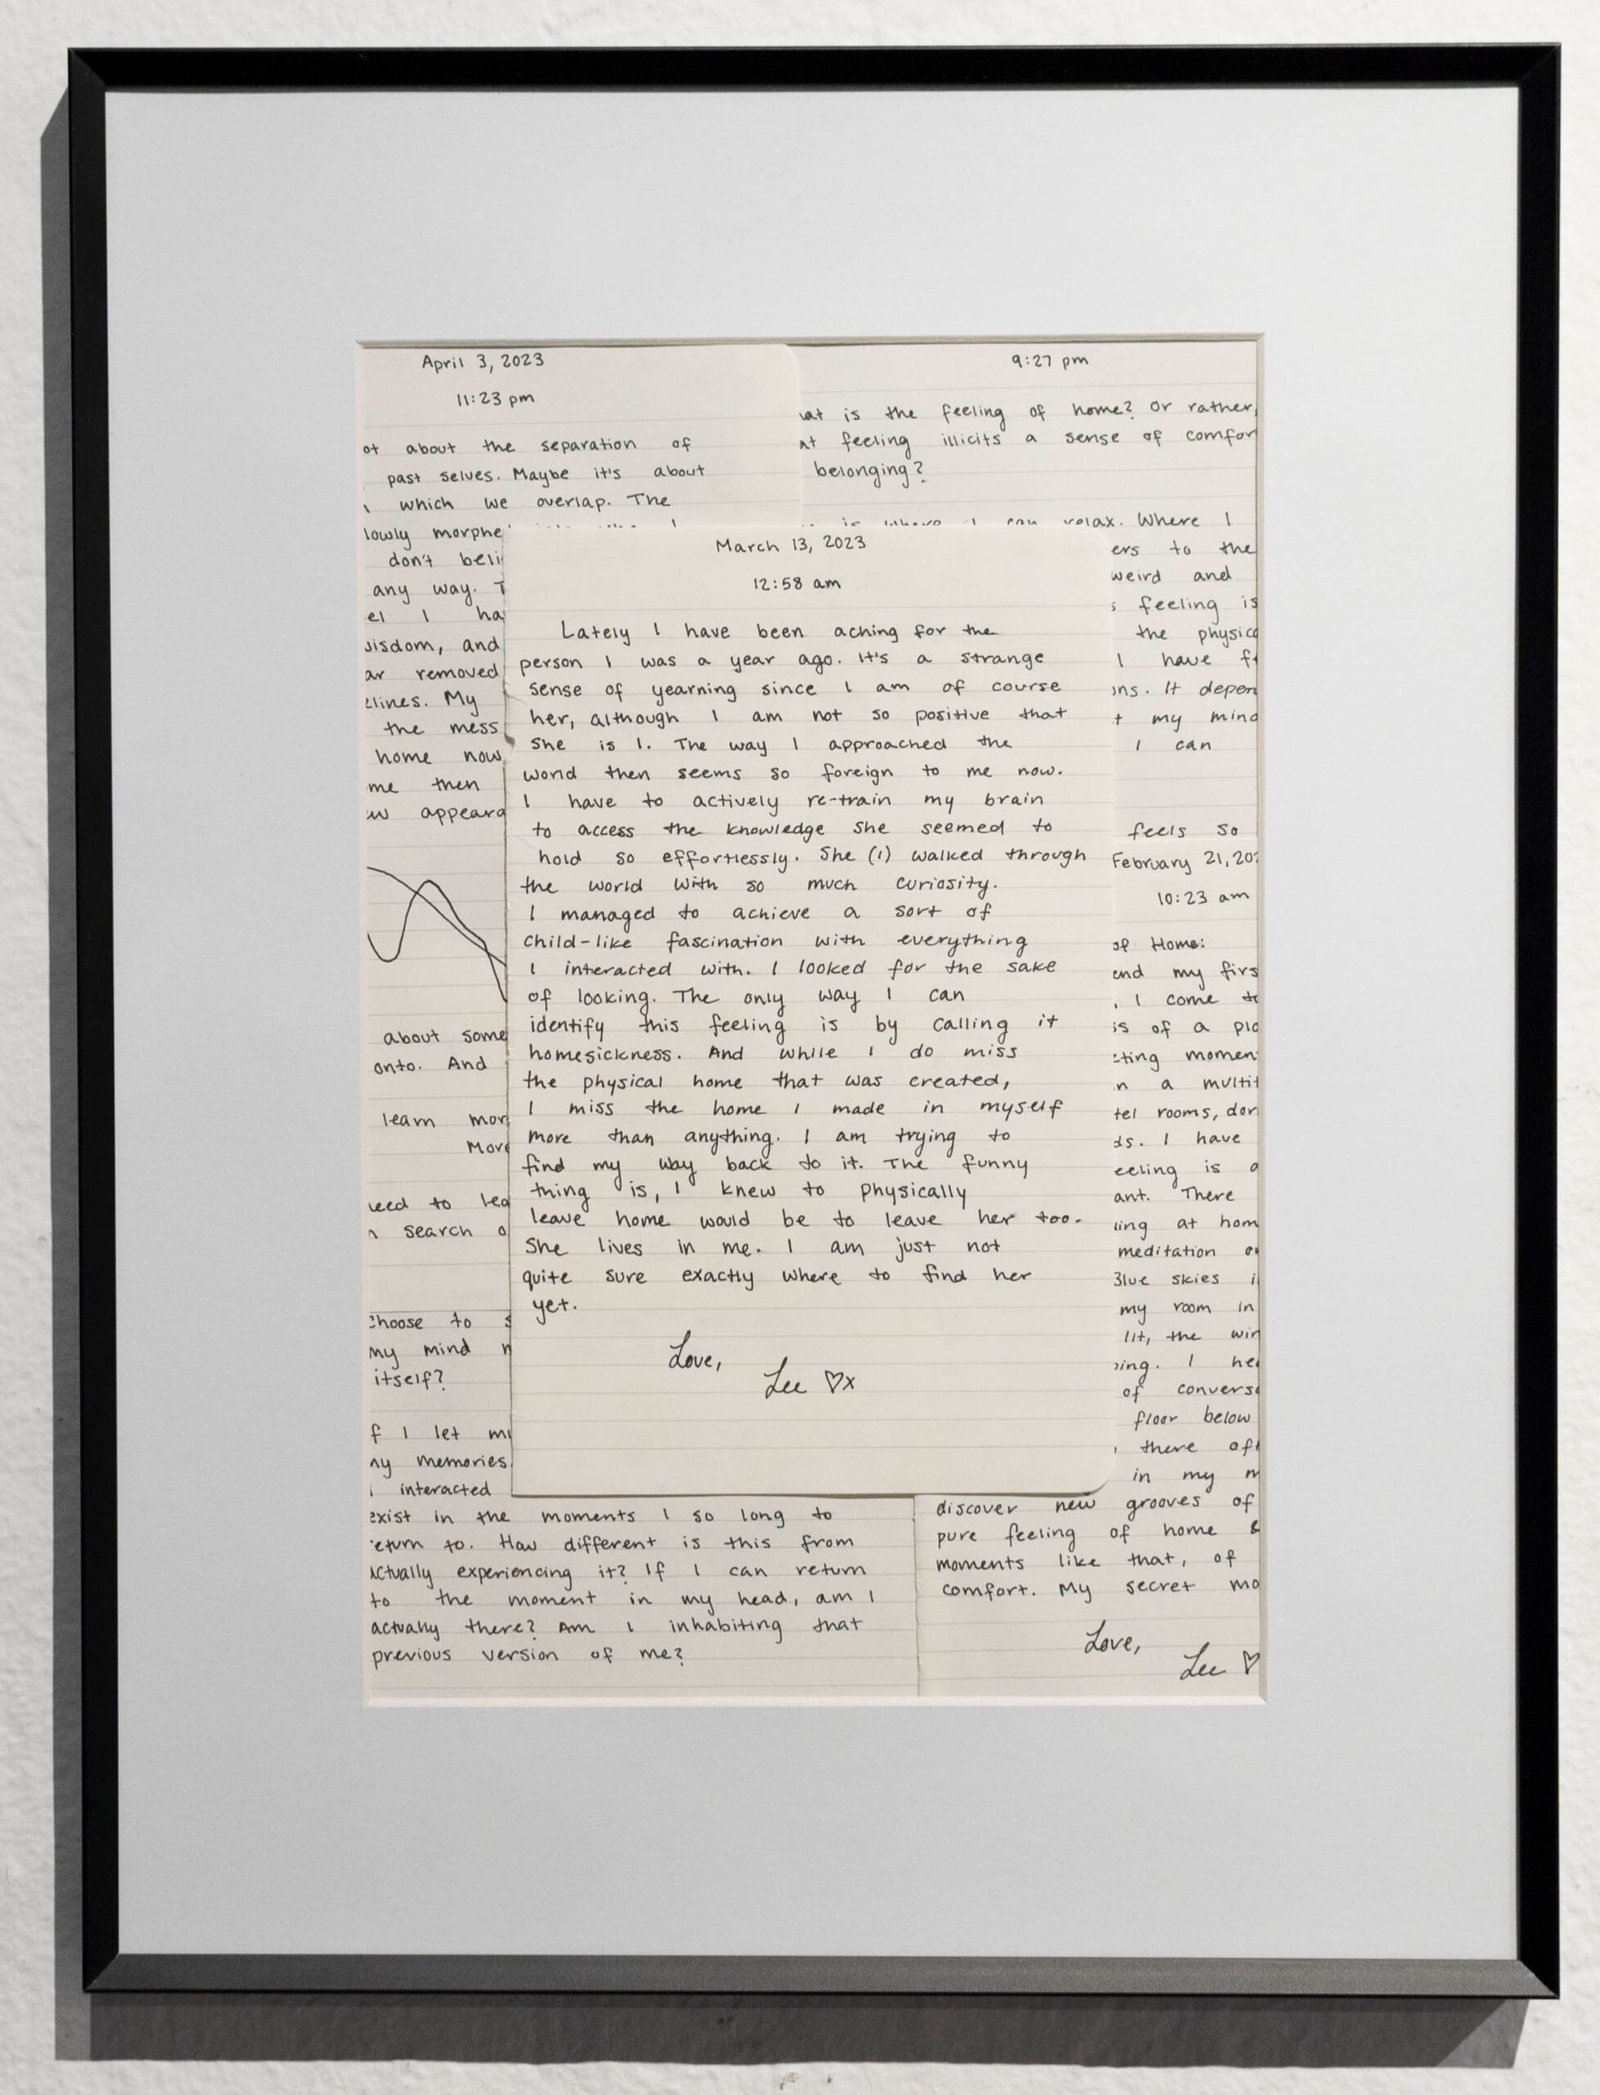 April 3, 2023
11:23 pm
ot about the separation of
past selves. Maybe it's about
which we overlap. The
lowly morphe
don't beli
any way. T
el I ha
wisdom, and
ar removed
elines. My
the mess
home now
me then
ew appeara
about some
onto. And
learn mor
More
need to lea
n search o
choose to s
my mind n
itself?
f I let my
my memories
I interacted
exist in the moments I so long to
return to. How different is this from
actually experiencing it? If I can return
to the moment in my head, am I
actually there? Am I inhabiting that
previous version of me?
9:27 pm
at is the feeling of home? Or rather,
at feeling illicits a sense of comfor
belonging?
is where I can relax. Where I
ers to the
weird and
s feeling is
the physica
I have f
ons. It depen
t my mind
I can
feels so
March 13, 2023
12:58 am
Lately I have been aching for the
person I was a year ago. It's a strange
sense of yearning since I am of course
her, although I am not so positive that
she is I. The way I approached the
world then seems so foreign to me now.
I have to actively re-train my brain
to access the knowledge she seemed to
hold so effortlessly. She (I) walked through
the world with so much curiosity.
I managed to achieve a sort of
child-like fascination with everything
I interacted with. I looked for the sake
of looking. The only way I can
identify this feeling is by calling it
homesickness. And while I do miss
the physical home that was created,
I miss the home I made in myself
more than anything. I am trying to
find my way back to it. The funny
thing is, I knew to physically
leave home would be to leave her too.
She lives in me. I am just not
quite sure exactly where to find her
yet.
Love,
Lee ♡x
February 21, 202
10:23 am
of Home:
end my firs
, I come to
is of a pla
cting momen
n a multit
tel rooms, dor
ds. I have
eeling is a
ant. There
ling at hom
meditation o
Blue skies i
my room in
lit, the win
ping. I hea
of conversa
floor below
, there oft
in my m
discover new grooves of
pure feeling of home &
moments like that, of
comfort. My secret mo
Love,
Lee ♡